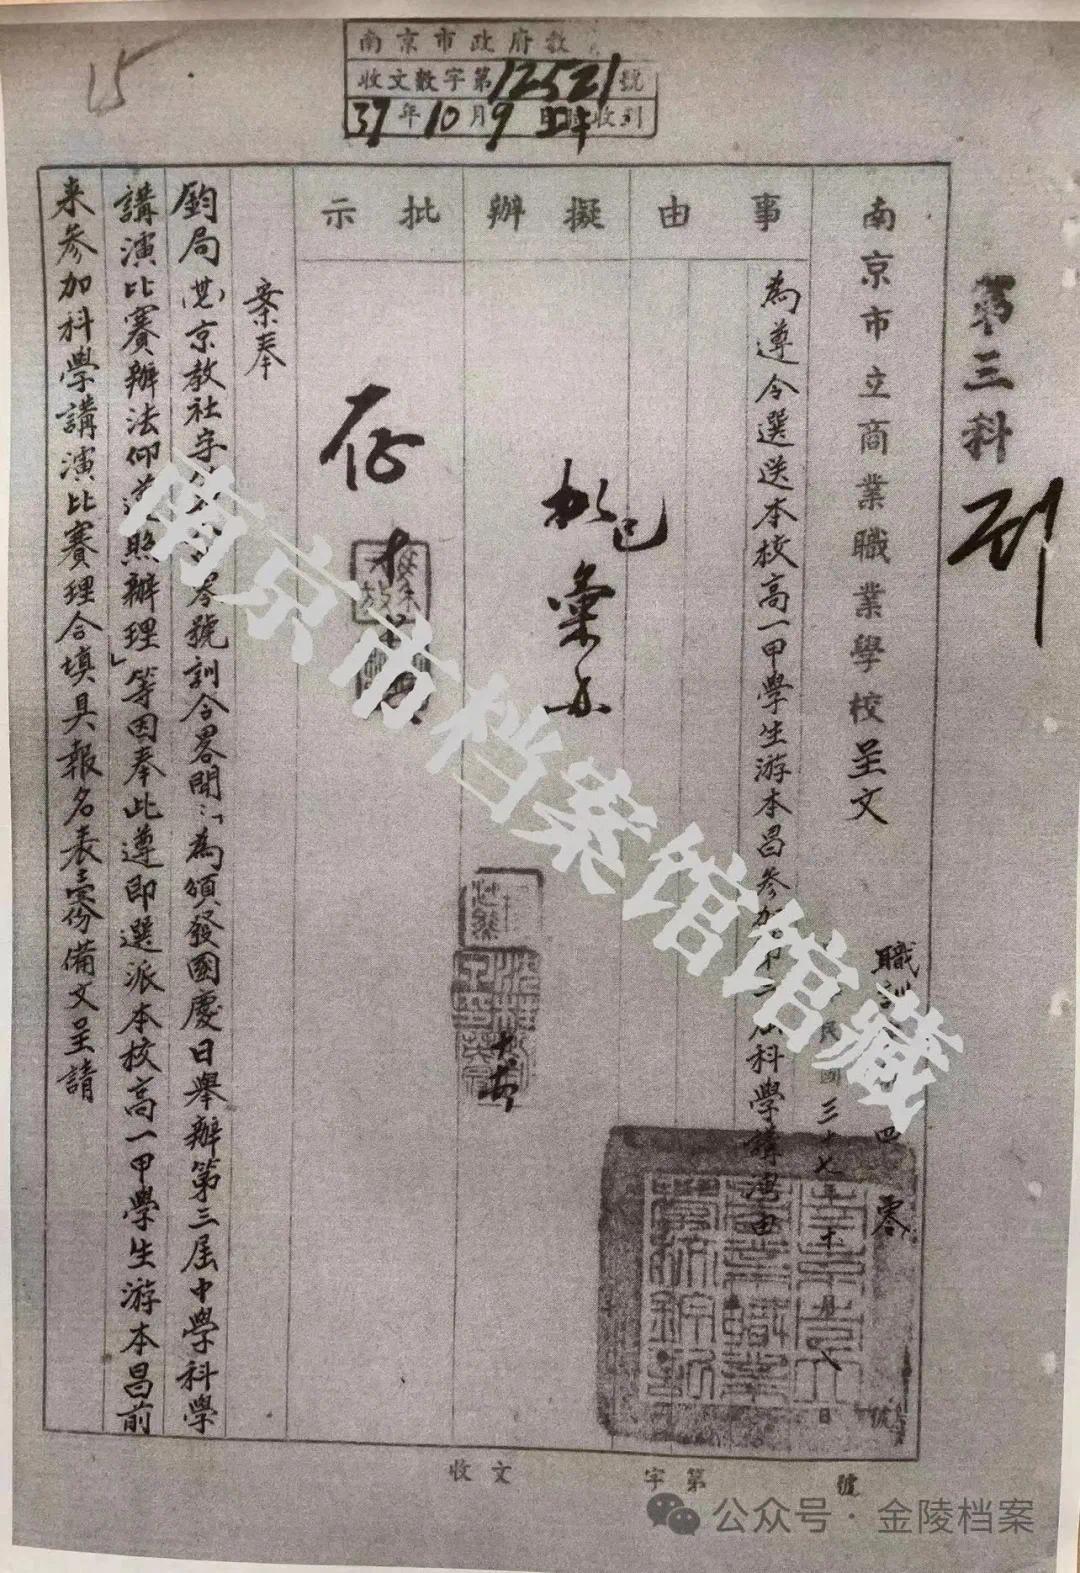 15
南京市政府教
收文數字第12521號
37年10月9日 收到
第三科
南京市立商業職業學校呈文
職訓 四 零
民國三十七年十月八日
號
事由
為遵令選送本校高一甲學生游本昌參加第三屆科學講演由
擬辦
批示
存
彙
案奉
鈞局 京教社字 號訓令畧開：「為頒發國慶日舉辦第三屆中學科學
講演比賽辦法仰遵照辦理」等因奉此遵即選派本校高一甲學生游本昌前
来參加科學講演比賽理合填具報名表壹份備文呈請
收文 字第 號
南京市档案馆馆藏
公众号·金陵档案